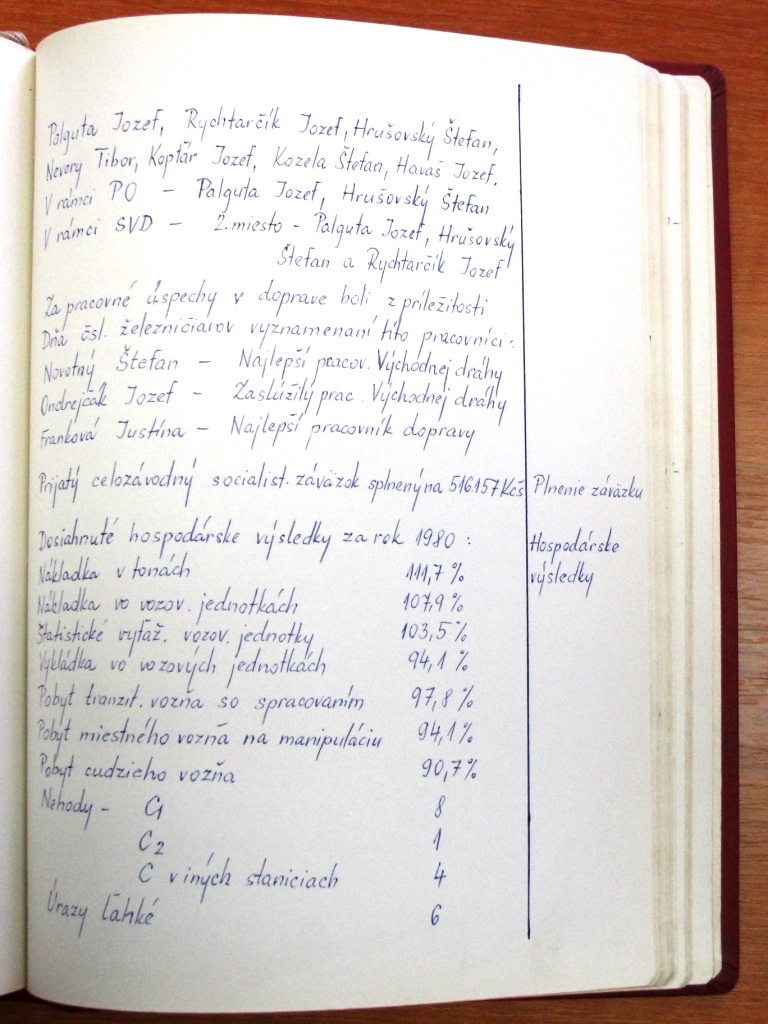 Palguta Jozef, Rychtarčík Jozef, Hrušovský Štefan,
Nevery Tibor, Koptár Jozef, Kozela Štefan, Havaš Jozef.
V rámci PO – Palguta Jozef, Hrušovský Štefan
V rámci SVD – 2. miesto - Palguta Jozef, Hrušovský
Štefan a Rychtarčík Jozef
Za pracovné úspechy v doprave boli z príležitosti
Dňa čsl. železničiarov vyznamenaní títo pracovníci:
Novotný Štefan – Najlepší pracov. Východnej dráhy
Ondrejčák Jozef – Zaslúžilý prac. Východnej dráhy
Franková Justína – Najlepší pracovník dopravy
Prijatý celozávodný socialist. záväzok splnený na 516.157 Kčs
Plnenie záväzku
Dosiahnuté hospodárske výsledky za rok 1980 :
Hospodárske
výsledky
Nákladka v tonách 111,7 %
Nákladka vo vozov. jednotkách 107,9 %
Štatistické vyťaž. vozov. jednotky 103,5 %
Vykládka vo vozových jednotkách 94,1 %
Pobyt tranzit. vozňa so spracovaním 97,8 %
Pobyt miestného vozňa na manipuláciu 94,1 %
Pobyt cudzieho vozňa 90,7 %
Nehody – C1 8
C2 1
C v iných staniciach 4
Úrazy ľahké 6